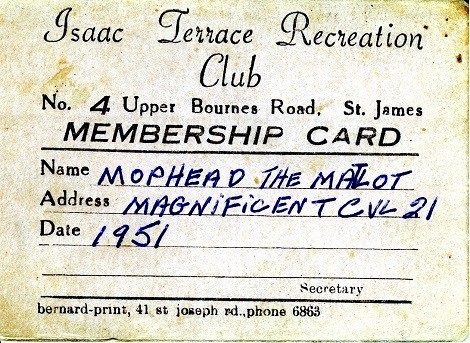 Isaac Terrace Recreation
Club
No. 4 Upper Bournes Road, St. James
MEMBERSHIP CARD
Name MOPHEAD THE
Address MAGNIFICENT CVL 21
Date 1951
Secretary
bernard-print, 41 st joseph rd.,phone 6863